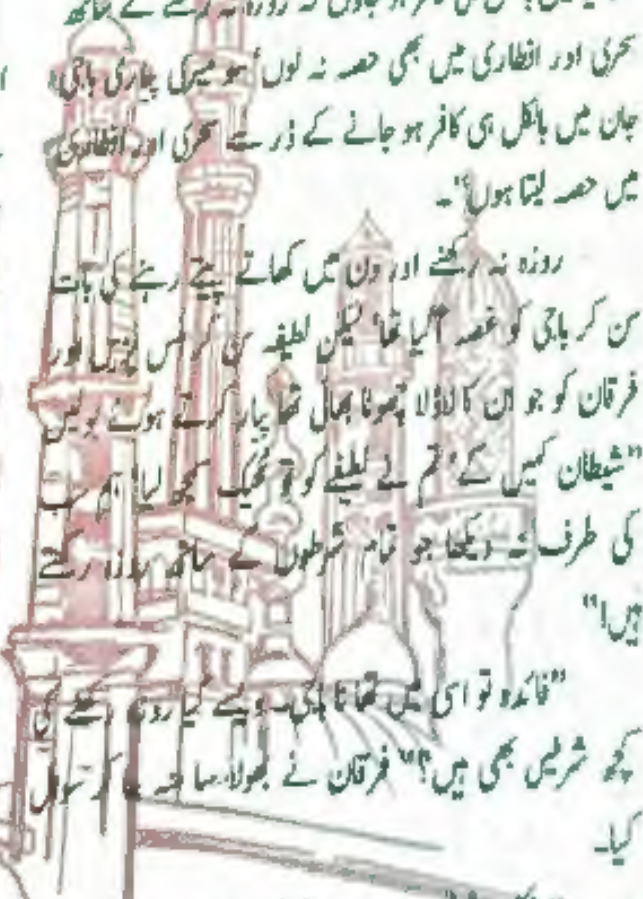 کافر ہو جاؤں کہ روزہ نہ رکھنے کے ساتھ
سحری اور افطاری میں بھی حصہ نہ لوں! سو میری پیاری باجی
جان میں بالکل ہی کافر ہو جانے کے ڈر سے سحری اور افطاری
میں حصہ لیتا ہوں"۔
روزہ نہ رکھنے اور دن میں کھاتے پیتے رہنے کی بات
سن کر باجی کو غصہ آگیا تھا لیکن لطیفہ سن کر ہنس پڑیں اور
فرقان کو جو ان کا لاڈلا چھوٹا بھائی تھا پیار کرتے ہوئے بولیں
"شیطان کہیں کے' تم نے لطیفے کو تو ٹھیک سمجھ لیا' ہم سب
کی طرف نہ دیکھا جو تمام شرطوں کے ساتھ روزہ رکھتے
ہیں!"
"فائدہ تو اسی میں تھا نا باجی۔ ویسے کیا روزہ رکھنے کی
کچھ شرطیں بھی ہیں؟" فرقان نے بھولا سا منہ بنا کر سوال
کیا۔